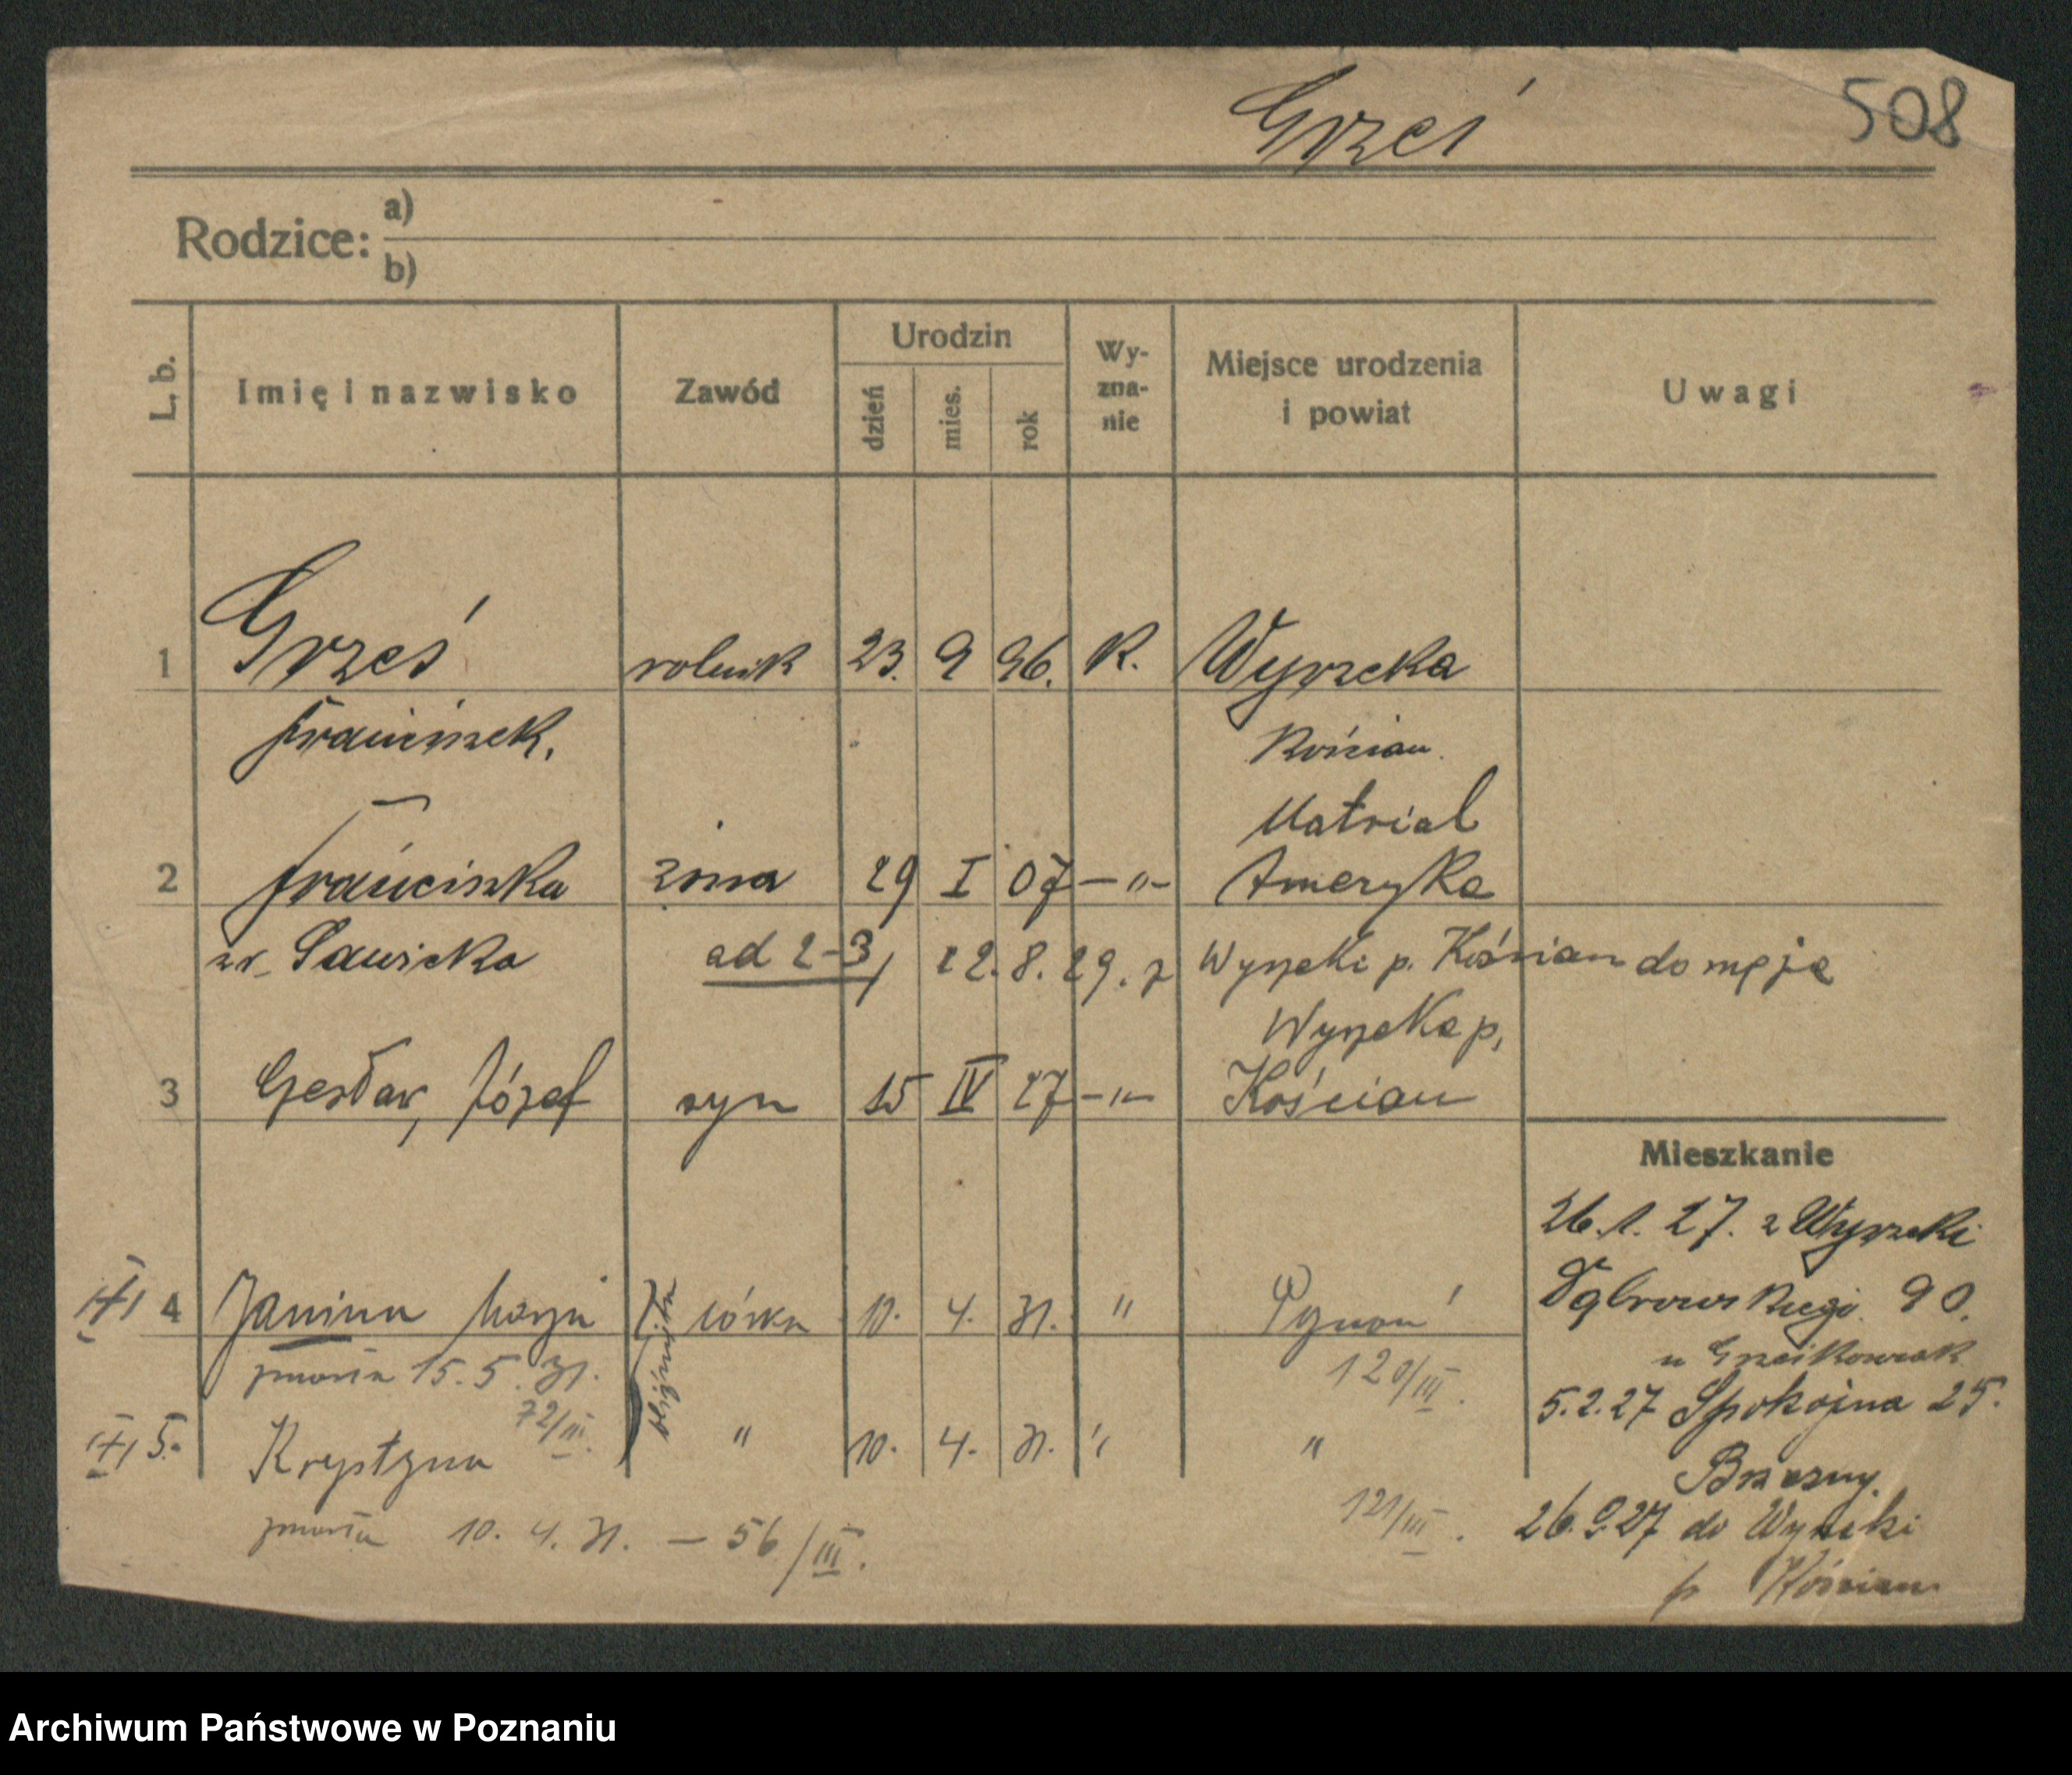 Grześ
508
Rodzice: a)
b)
L. b.
Imię i nazwisko
Zawód
Urodzin
dzień
mies.
rok
Wy-
zna-
nie
Miejsce urodzenia
i powiat
Uwagi
1 Grześ rolnik 23. 9 96. R. Wyrzeka
Franciszek. Kościan.
2 Franciszka żona 29 I 07 —"— Ameryka
Sawicka ad 2-3/ 22. 8. 29. z Wyrzeki p. Kościan do męża
Wyrzeka p,
3 Józef syn 15 IV 27 —"— Kościan
Mieszkanie
26. 1. 27. z Wyrzeki
Dąbrowskiego 90.
4 Janina Marja córka 10. 4. 31. " Poznań
zmarła 15. 5. 31. 120/III.
72/III.
5.2.27 Spokojna 25.
5. Krystyna " 10. 4. 31. " "
121/III.
zmarła 10. 4. 31. — 56/III.
26.9.27 do
p Kościan
Archiwum Państwowe w Poznaniu